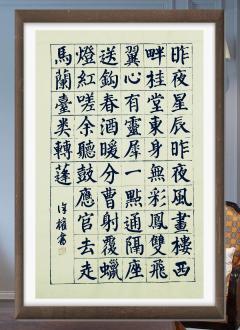 昨夜星辰昨夜風畫樓西
畔桂堂東身無彩鳳雙飛
翼心有靈犀一點通隔座
送鈎春酒暖分曹射覆蠟
燈紅嗟余聽鼓應官去走
馬蘭臺类轉蓬
書